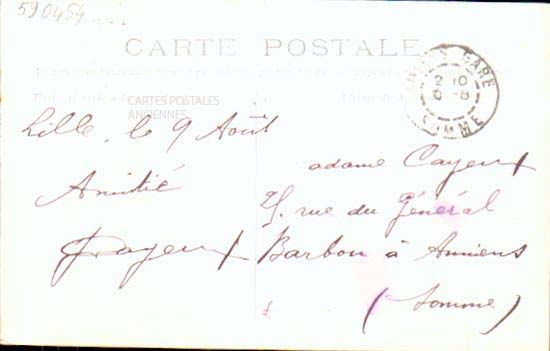 590454
CARTE POSTALE
CARTES POSTALES
ANCIENNES
GARE
2 10
8 -8
SOMME
Lille, le 9 Août
Amitié
Cayeux
adame Cayeux
rue du Général
Barbou à Amiens
(Somme)